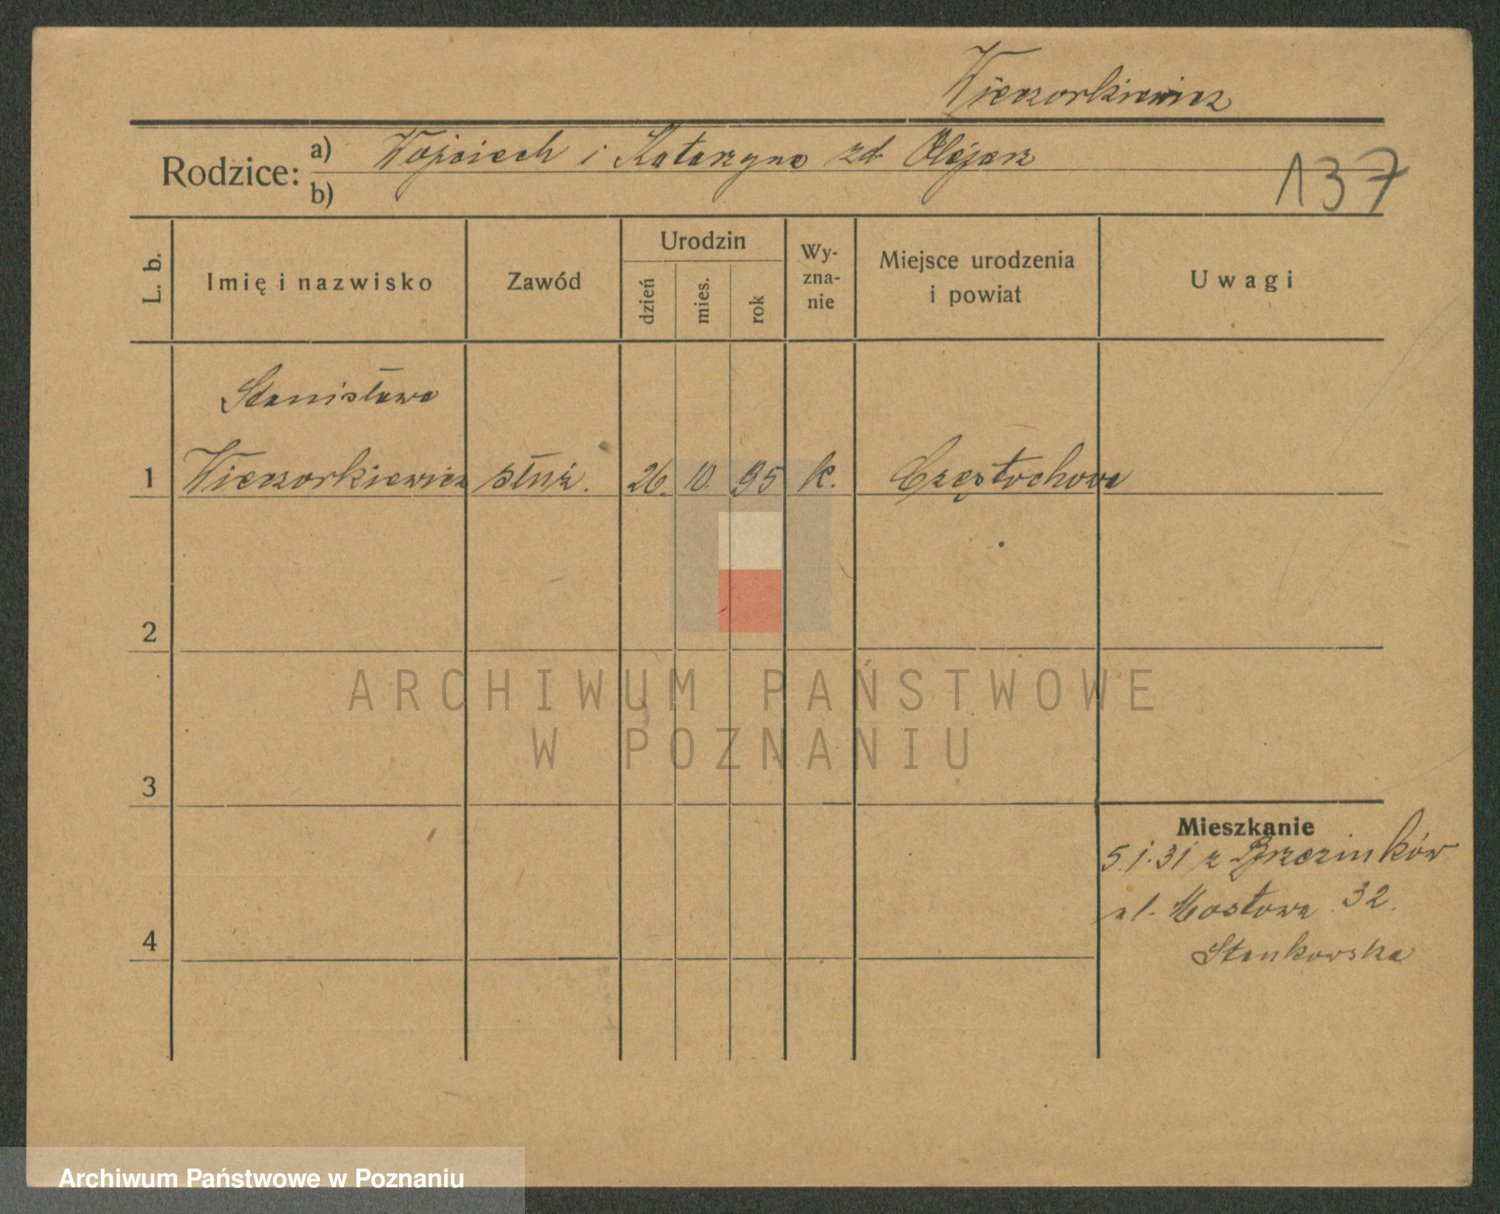 Wieczorkiewicz
Rodzice: a) Wojciech i Katarzyna zd. Olejarz
b)
137
L. b.
Imię i nazwisko
Zawód
Urodzin
dzień
mies.
rok
Wy-
zna-
nie
Miejsce urodzenia
i powiat
Uwagi
Stanisława
1 Wieczorkiewicz służ. 26. 10. 95 k. Częstochowa
2
ARCHIWUM PAŃSTWOWE
W POZNANIU
3
Mieszkanie
5.1.31 z Brzezinków
ul. Mostowa 32.
4
Stankowska
Archiwum Państwowe w Poznaniu